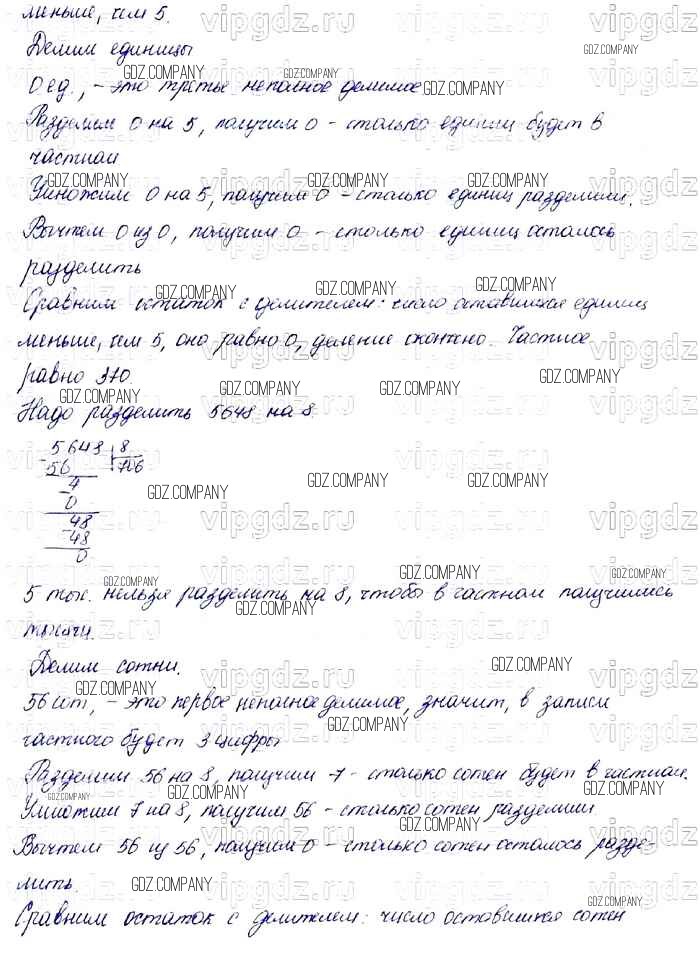 меньше, чем 5.
Делим единицы
0 ед., – это третье неполное делимое
Разделим 0 на 5, получим 0 – столько единиц будет в
частном
Умножим 0 на 5, получим 0 – столько единиц разделили.
Вычтем 0 из 0, получим 0 – столько единиц осталось
разделить
Сравним остаток с делителем: число оставшихся единиц
меньше, чем 5, оно равно 0, деление окончено. Частное
равно 370.
Надо разделить 5648 на 8.
5648 8
56 706
4
0
48
48
0
5 тыс. нельзя разделить на 8, чтобы в частном получились
тысячи.
Делим сотни.
56 сот, – это первое неполное делимое, значит, в записи
частного будет 3 цифры
Разделим 56 на 8, получим 7 – столько сотен будет в частном.
Умножим 7 на 8, получим 56 – столько сотен разделили
Вычтем 56 из 56, получим 0 – столько сотен осталось разде-
лить.
Сравним остаток с делителем: число оставшихся сотен
GDZ.COMPANY
vipgdz.ru